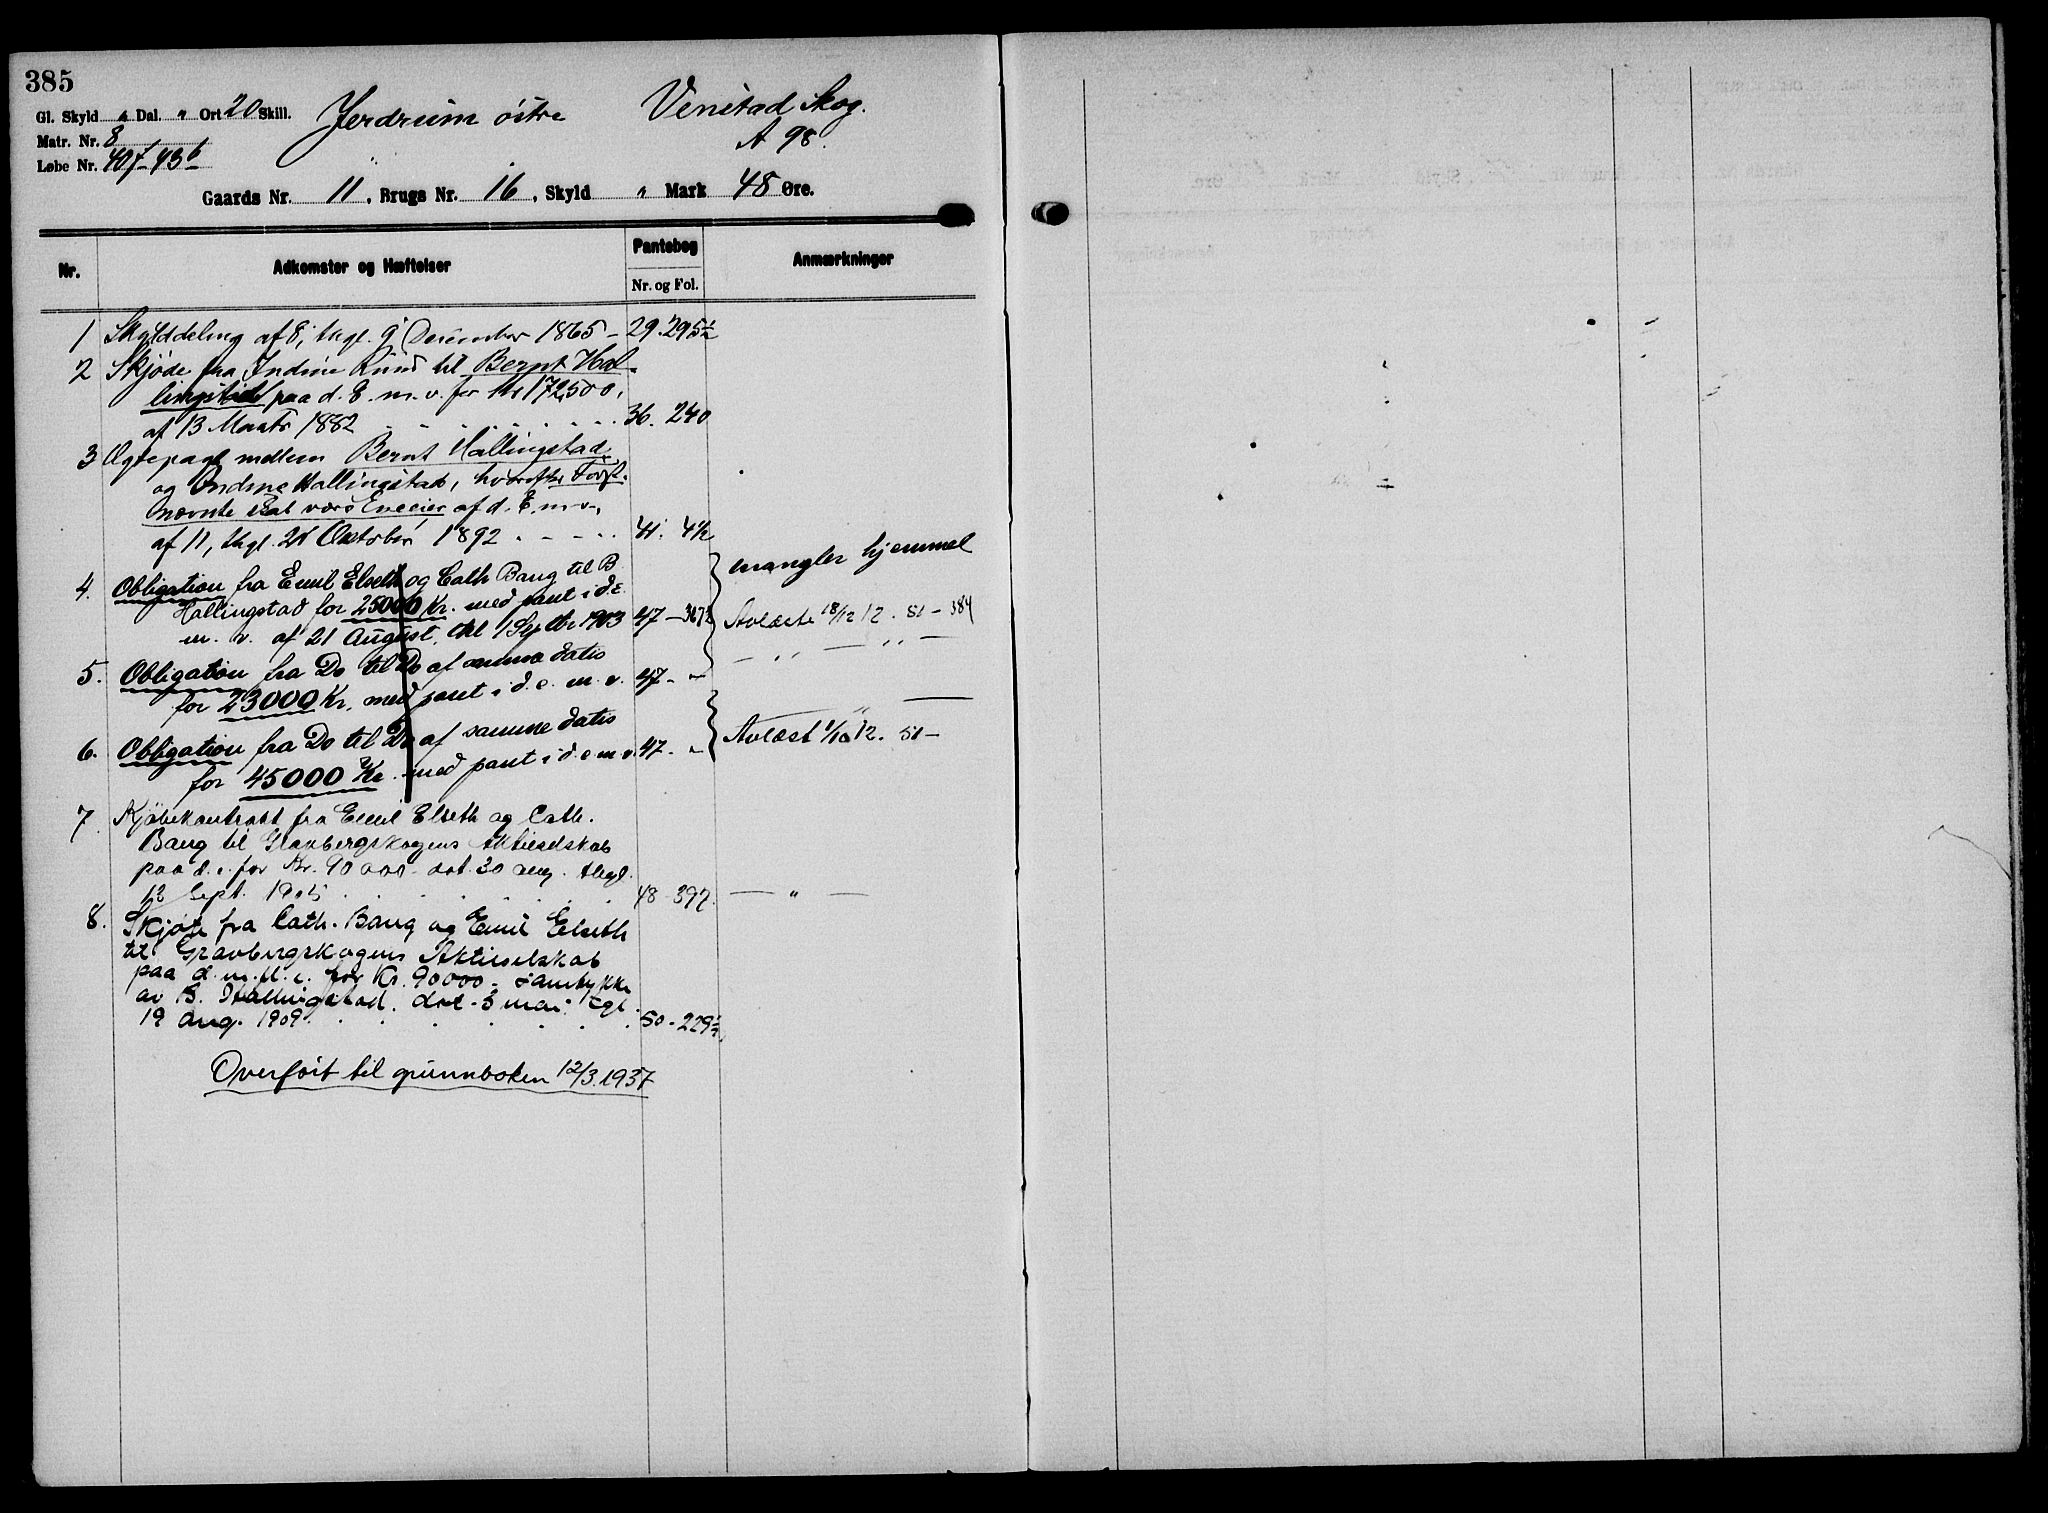 385
Gl. Skyld " Dal. " Ort 20 Skill. Jerdrum östre Venstad Skog.
Matr. Nr. 8 A 98.
Løbe Nr. 407-43b
Gaards Nr. 11, Brugs Nr. 16, Skyld " Mark 48 Øre.
Nr. Adkomster og Hæftelser Pantebog Anmærkninger
Nr. og Fol.
1 Skylddeling af 8, thgl. 9 December 1865 - 29. 295½
2 Skjöde fra Indine Ruud til Bernt Hal-
lingstad paa d. E. m. v. for Kr 172,500,
af 13 Marts 1882 36. 240
3 Ægtepagt mellem Bernt Hallingstad
og Ondine Hallingstad, hvorefter Først-
nævnte skal være Eneeier af d. E. m. v.,
af 11, thgl. 24 Oktober 1892 41. 4½
4. Obligation fra Emil Elseth og Cath Bang til B. mangler hjemmel
Hallingstad for 25000 Kr. med pant i d. E.
m. v. af 21 August, thl 1 Septbr 1903 47 - 367½ Avlæste 18/12 12. 51 - 384
5. Obligation fra Do til Do af samme datis — " — " —
for 23000 Kr. med pant i d. e. m. v. 47 - "
6. Obligation fra Do til Do af samme datis — " —
for 45000 Kr. med pant i d. e m v. 47. " Avlæst 1/10 12. 51 -
7. Kjöbekontrakt fra Emil Elseth og Cath.
Bang til Gravbergskogens Aktieselskab
paa d. e. for Kr. 90 000 - dat. 30 aug. thgl.
12 Sept. 1905 48 - 397. — " —
8. Skjöte fra Cath. Bang og Emil Elseth
til Gravbergskogens Aktieselskab
paa d. m. fl. e. for Kr. 90000 - samtykke
av B. Hallingstad. dat. 3 mai tgl.
19 aug. 1909. 50 - 229½
Overført til grunnboken 12/3.1937